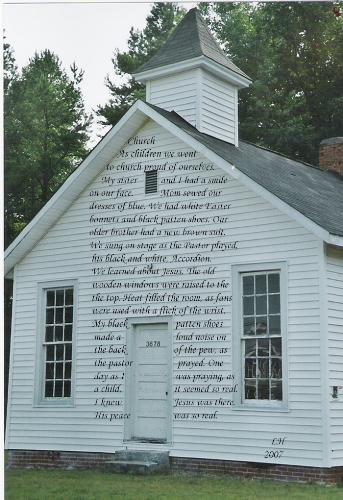 Church
As children we went
to church proud of ourselves.
My sister and I had a smile
on our face. Mom sewed our
dresses of blue. We had white Easter
bonnets and black patten shoes. Our
older brother had a new brown suit.
We sung on stage as the Pastor played,
his black and white, Accordion.
We learned about Jesus. The old
wooden windows were raised to the
the top. Heat filled the room, as fans
were used with a flick of the wrist.
My black patten shoes
made a loud noise on
the back of the pew, as
the pastor prayed. One
day as I was praying, as
a child, it seemed so real.
I knew Jesus was there,
His peace was so real.
3678
LH
2007